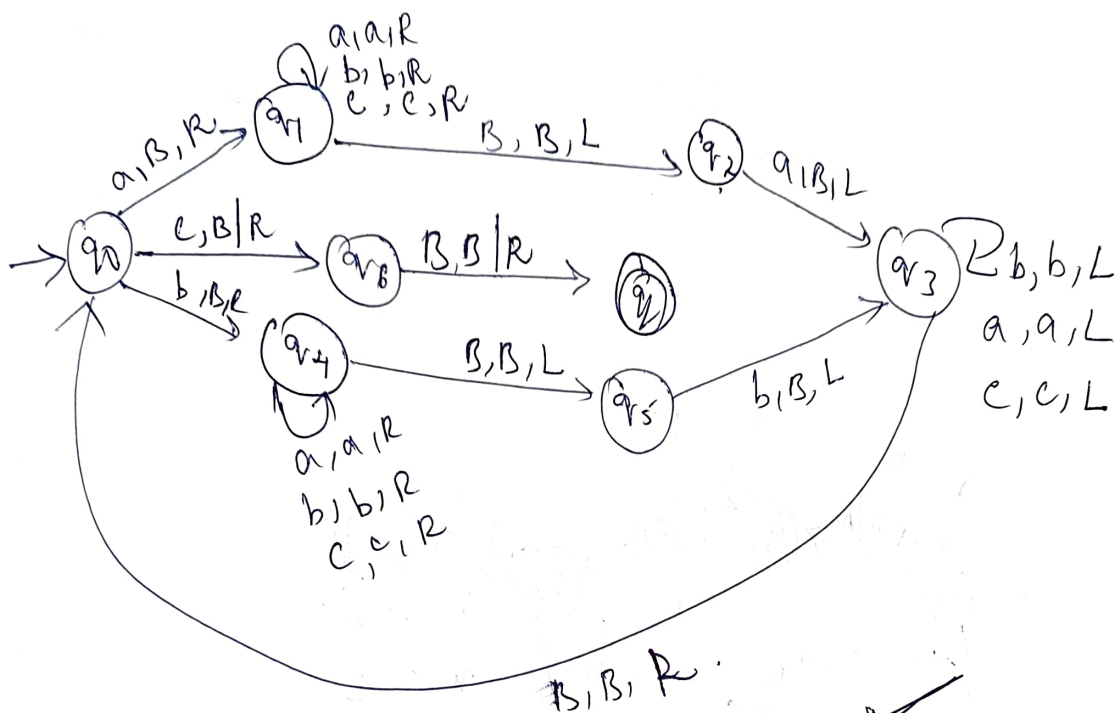 a, a, R
b, b, R
c, c, R
q1
a, B, R
B, B, L
q2
a, B, L
q0
c, B/R
q6
B, B/R
q3
b, b, L
a, a, L
c, c, L
b, B, R
q4
B, B, L
q5
b, B, L
a, a, R
b, b, R
c, c, R
B, B, R.